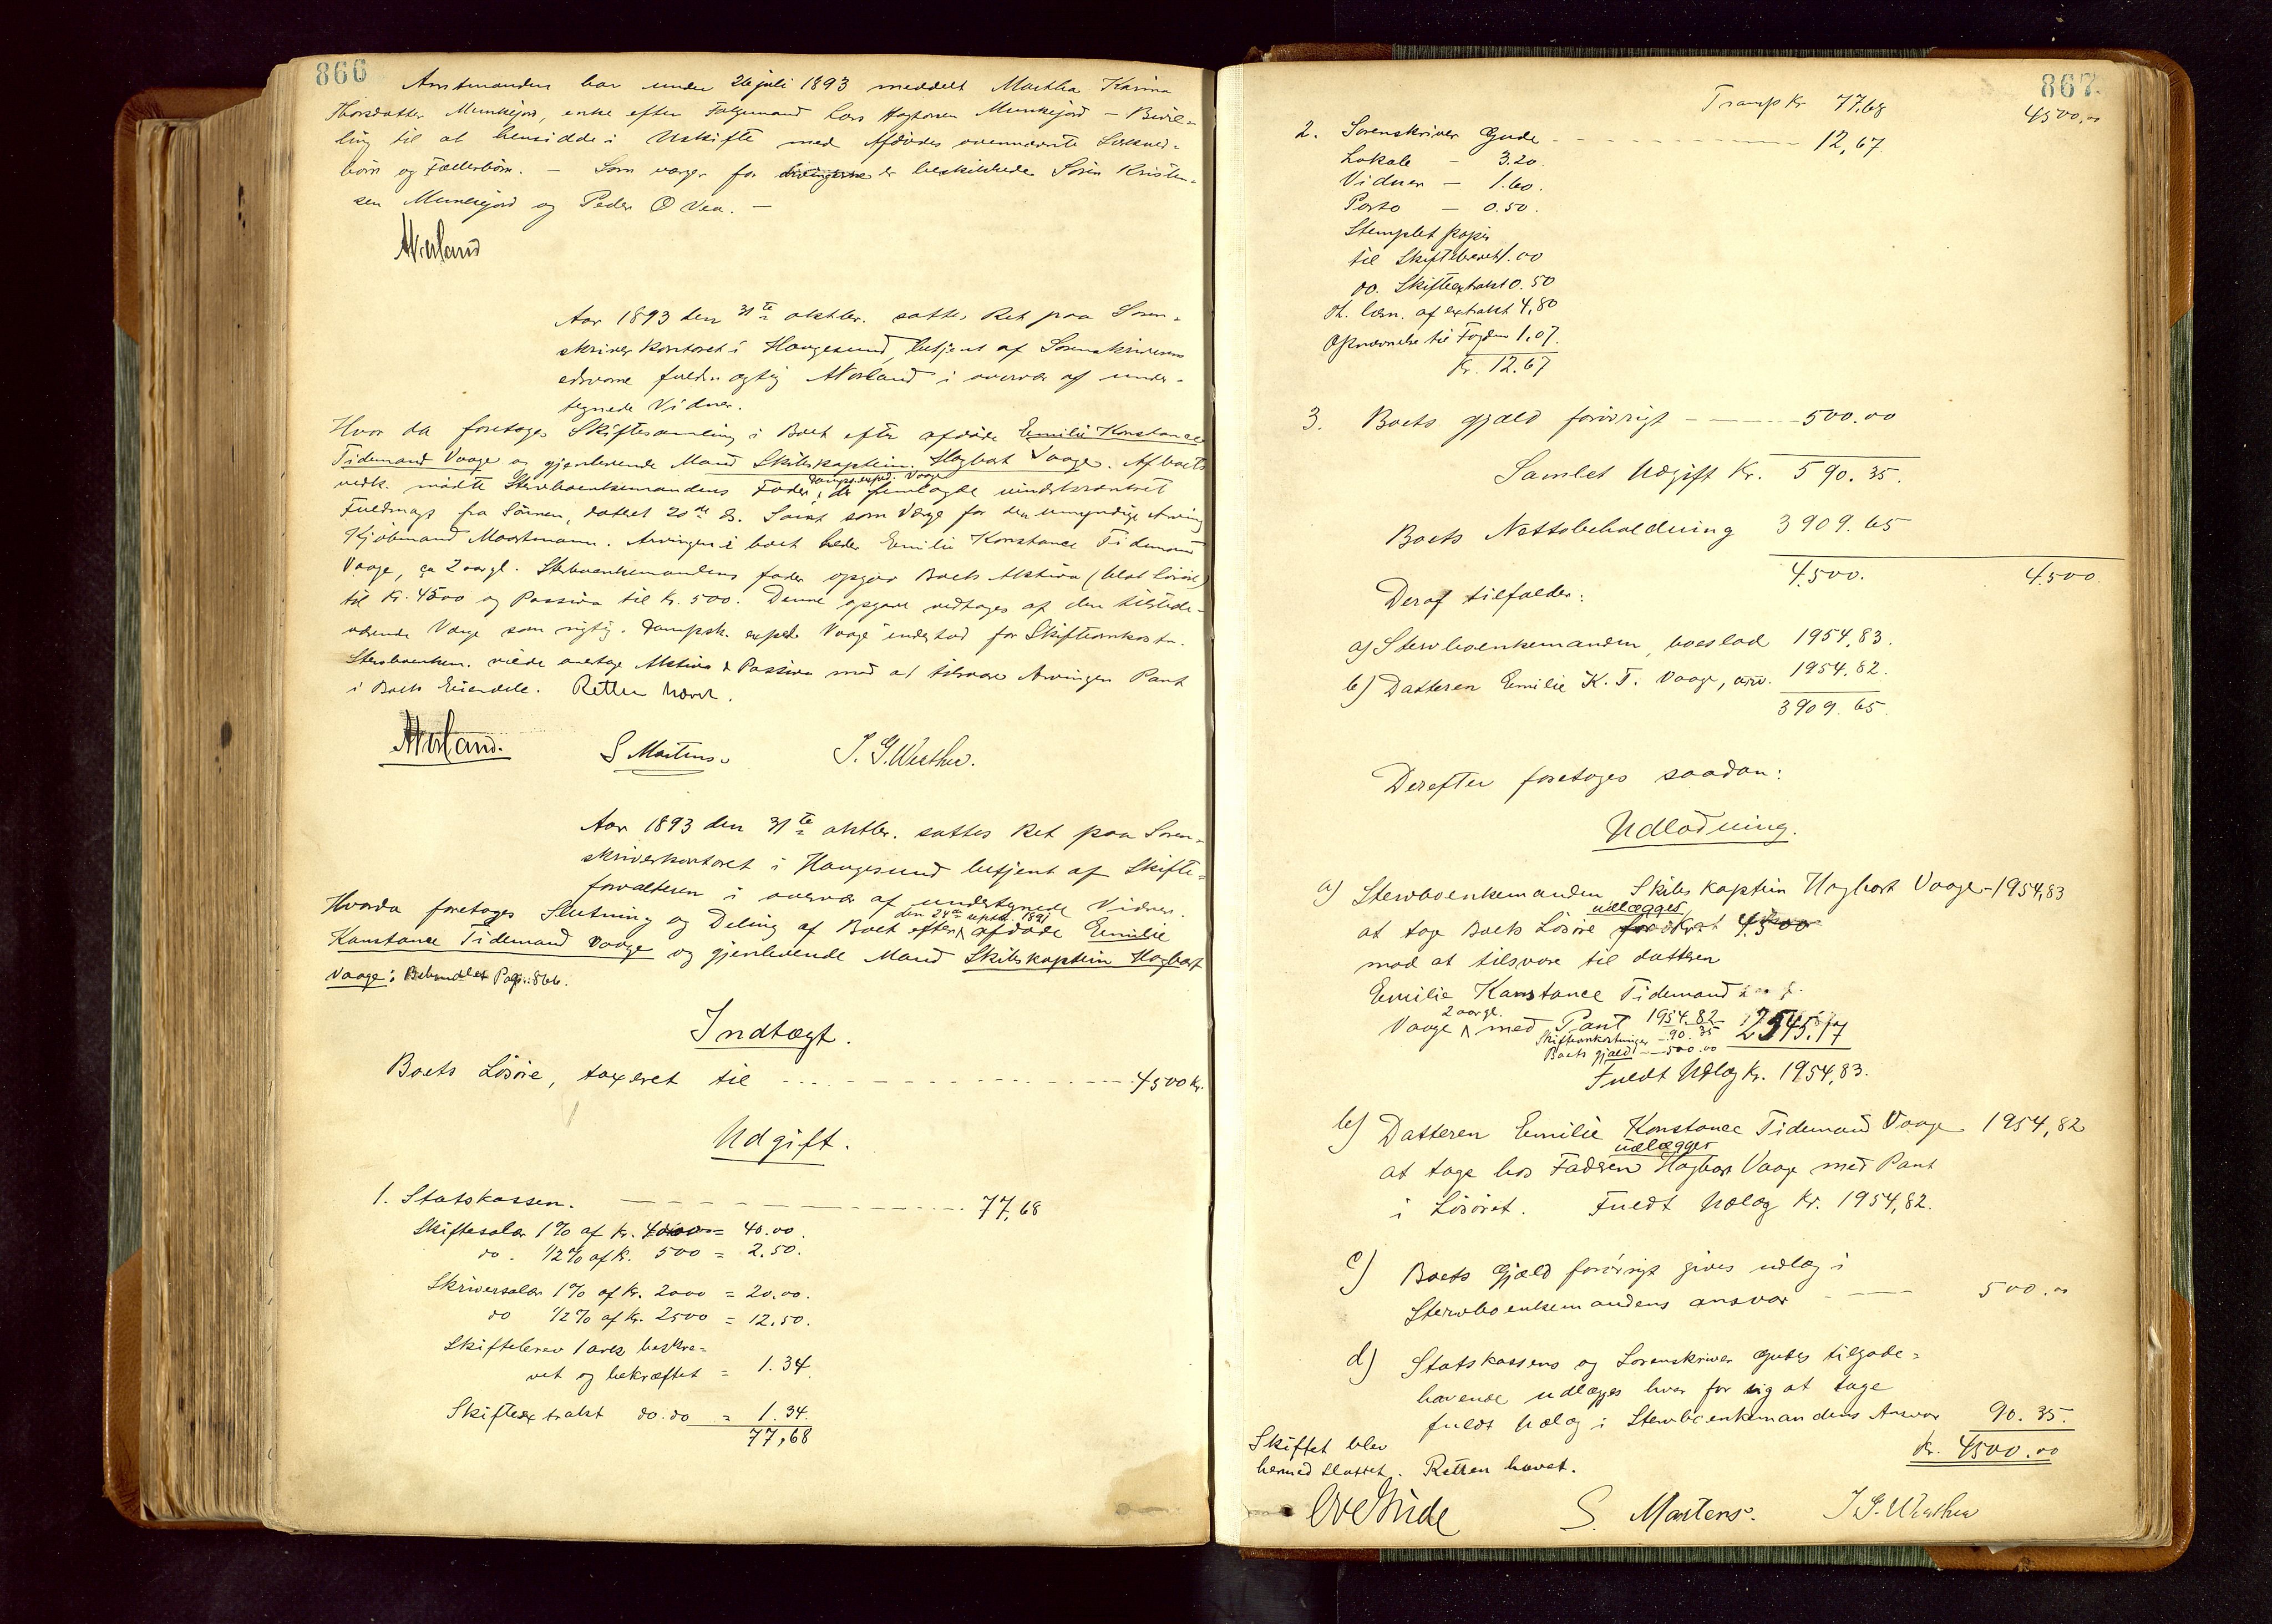 866
Amtmanden har under 26 juli 1893 meddelt Martha Karina
Thorsdatter Munkejord, enke efter Folgemand Lars Munkejord – Bevil-
ling til at hensidde i Uskifte med Afdødes ovennævnte
børn og Fællesbørn. – Som værger for er beskikkede Sören Kristen-
sen Munkejord og Peder O Vea. –
AVorland
Aar 1893 den 31te oktbr. sattes Ret paa Soren-
skriverkontoret i Haugesund, betjent af Sorenskriverens
edsvorne fuldmægtig AVorland i overvær af under-
tegnede Vidner.
Hvor da foretoges Skiftesamling i Boet efter afdøde Emilie Konstance
Tidemand Vaage og gjenlevende Mand Skibskaptein Hagbart Vaage. Af boets
vedk. mødte Sterboenkemandens Fader, dampsk.exped. Vaage der fremlagde uindskrænket
Fuldmagt fra Sönnen, dateret 20de ds. Samt som Værge for den umyndige Arving
Kjöbmand Maartmann. Arvingen i boet heder Emilie Konstance Tidemand
Vaage, ca 2 aar gl. Sterboenkemandens fader opgav Boets Aktiva (blot Lösöre)
til Kr. 4500 og Passiva til Kr. 500. Denne opgave vedtoges af den tilstede-
værende Værge som rigtig. Dampsk. exped. Vaage indestod for Skifteomkostn.
Sterboenkem. vilde overtage Aktiva & Passiva mod at tilsvare Arvingen Pant
i Boets Eiendele. Retten hævet.
AVorland. S Martens. J. G. Westher.
Aar 1893 den 31te oktbr. sattes Ret paa Soren-
skriverkontoret i Haugesund betjent af Skifte-
forvalteren i overvær af undertegnede Vidner.
Hvorda foretoges Slutning og Deling af Boet efter den 24de septbr. 1891 afdøde Emilie
Konstance Tidemand Vaage og gjenlevende Mand Skibskaptein Hagbart
Vaage; Behandlet Pag: 866.
Indtægt.
Boets Lösöre, taxeret til 4500 Kr.
Udgift.
1. Statskassen. 77,68
Skiftesalær 1% af Kr. 4000 = 40.00.
do. 1/2% af Kr. 500 = 2.50.
Skriversalær 1% af Kr. 2000 = 20.00.
do 1/2% af Kr. 2500 = 12.50.
Skiftebrev 1 ark beskre-
vet og bekræftet = 1.34.
Skifteextrakt do. do = 1.34.
77,68
867.
Transp Kr. 77,68 4500,00
2. Sorenskriver Gude 12,67.
Lokale – 3.20.
Vidner – 1.60.
Porto – 0.50.
Stemplet papir
til Skiftebrevet 1.00
do. Skifteextrakt 0.50
Th. læsn. af extrakt 4,80
Opnævnelse til Fogden 1.07.
Kr. 12.67
3. Boets gjæld forövrigt 500.00
Samlet Udgift Kr. 590.35.
Boets Nettobeholdning 3909.65
4500. 4500.
Deraf tilfalder:
a) Sterboenkemanden, boeslod 1954,83.
b) Datteren Emilie K. T. Vaage, arv. 1954,82.
3909.65.
Derefter foretoges saadan:
Udlodning.
a) Sterboenkemanden Skibskaptein Hagbart Vaage – 1954,83
udlægges
at tage Boets Lösöre for Kr. 4500
mod at tilsvare til datteren
Emilie Konstance Tidemand
Vaage 2 aar gl. med Pant 1954,82 2545,17
Skifteomkostninger – 90.35
Boets gjæld – 500.00
Fuldt Udlæg Kr. 1954,83.
b) Datteren Emilie Konstance Tidemand Vaage 1954,82
udlægges
at tage hos Faderen Hagbart Vaage med Pant
i Lösöret. Fuldt Udlæg Kr. 1954,82.
c) Boets Gjæld forövrigt gives udlæg i
Sterboenkemandens ansvar 500.00
d) Statskassens og Sorenskriver Gudes tilgode-
havende udlægges hver for sig at tage
fuldt Udlæg i Sterboenkemandens Ansvar 90.35.
Kr. 4500.00
Skiftet blev
hermed sluttet. Retten hævet.
Ove Gude S. Martens. J. G. Westher